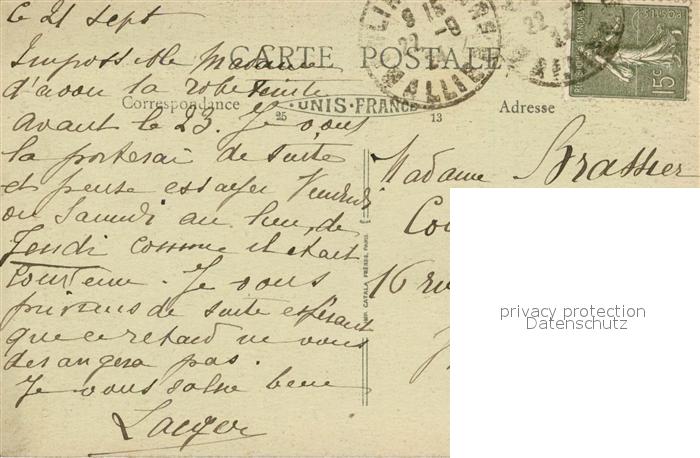 Le 21 Sept
Impossible Madame
CARTE POSTALE
d'avoir la robe teinte
Correspondance
UNIS-FRANCE
25
13
Adresse
avant le 23. Je vous
la porterai de suite
et pense essayer Vendredi
ou Samedi au lieu de
Jeudi comme il était
convenu. Je vous
préviens de suite espérant
que ce retard ne vous
dérangera pas.
Je vous salue bien
Madame Brassier
16 ru
CATALA FRÈRES, PARIS
15c
privacy protection
Datenschutz